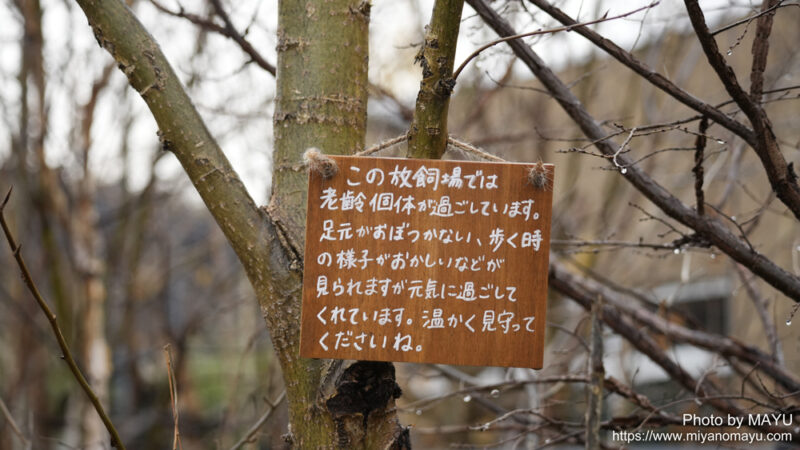 この放飼場では
老齢個体が過ごしています。
足元がおぼつかない、歩く時
の様子がおかしいなどが
見られますが元気に過ごして
くれています。温かく見守って
くださいね。
Photo by MAYU
https://www.miyanomayu.com/